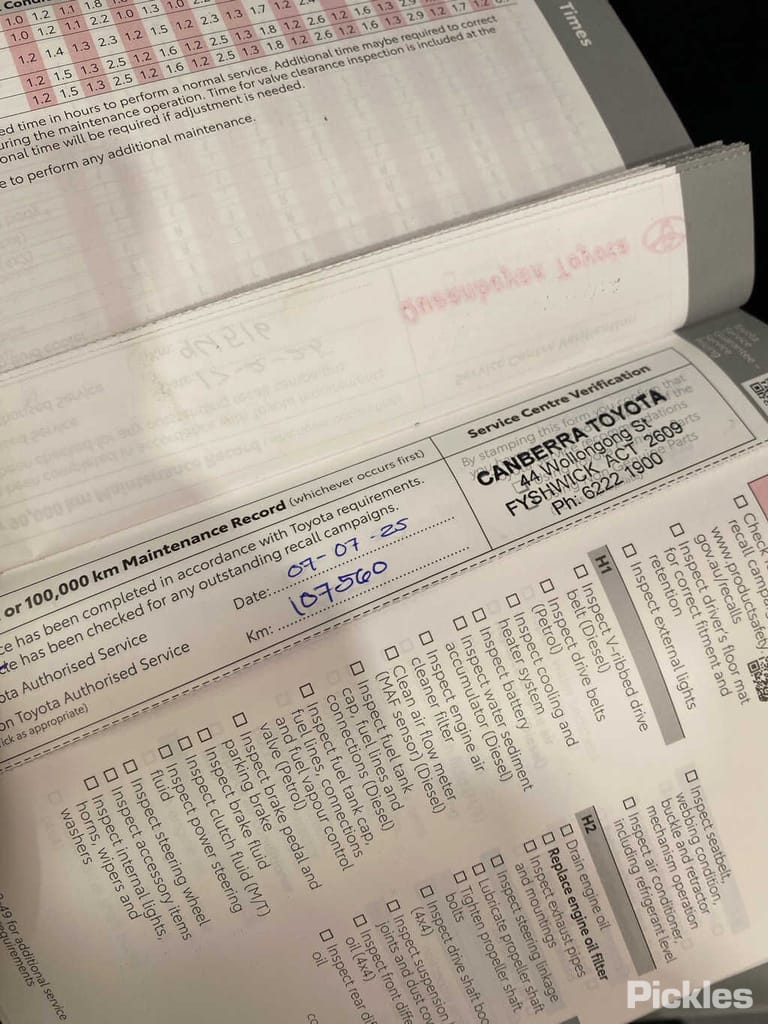 Times
1.2 1.4 1.3 2.3 1.2 1.5 1.2 2.3 1.3 1.7 1.2
1.2 1.5 1.3 2.5 1.2 1.6 1.2 2.5 1.3 1.8 1.2 2.6 1.2 1.6 1.3
1.2 1.5 1.3 2.5 1.2 1.6 1.2 2.5 1.3 1.8 1.2 2.6 1.2 1.6 1.3 2.9 1.2 1.7 1.2
time in hours to perform a normal service. Additional time maybe required to correct
during the maintenance operation. Time for valve clearance inspection is included at the
time will be required if adjustment is needed.
to perform any additional maintenance.
Queanbeyan Toyota
or 100,000 km Maintenance Record (whichever occurs first)
has been completed in accordance with Toyota requirements.
has been checked for any outstanding recall campaigns.
Authorised Service
Toyota Authorised Service
as appropriate)
Date: 07-07-25
Km: 107560
Service Centre Verification
By stamping this form you confirm that
CANBERRA TOYOTA
44 Wollongong St
FYSHWICK, ACT 2609
Ph: 6222 1900
Check
recall
www.productsafety.
gov.au/recalls
Inspect driver's floor mat
for correct fitment and
retention
Inspect external lights
H1
Inspect V-ribbed drive
belt (Diesel)
Inspect drive belts
(Petrol)
Inspect cooling and
heater system
Inspect battery
Inspect water sediment
accumulator (Diesel)
Inspect engine air
cleaner filter
Clean air flow meter
(MAF sensor) (Diesel)
Inspect fuel tank
cap, fuel lines and
connections (Diesel)
Inspect fuel tank cap,
fuel lines, connections
and fuel vapour control
valve (Petrol)
Inspect brake pedal and
parking brake
Inspect brake fluid
Inspect clutch fluid (M/T)
Inspect power steering
fluid
Inspect steering wheel
Inspect accessory items
Inspect internal lights,
horns, wipers and
washers
Inspect seatbelt,
webbing condition,
buckle and retractor
mechanism operation
Inspect air conditioner,
including refrigerant level
H2
Drain engine oil
Replace engine oil filter
Inspect exhaust pipes
and mountings
Inspect steering linkage
Lubricate propeller shaft
Tighten propeller shaft
bolts
Inspect drive shaft
(4x4)
Inspect suspension
joints and dust
Inspect front
oil (4x4)
Inspect rear
oil
for additional service
requirements
Pickles